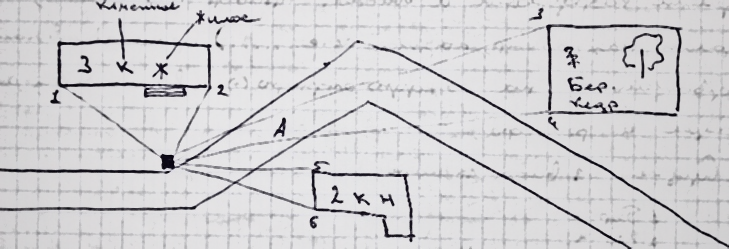 каменное
жилое
3 К Ж
1
2
3
Ж
Бер.
кедр
4
А
5
2 К Н
6